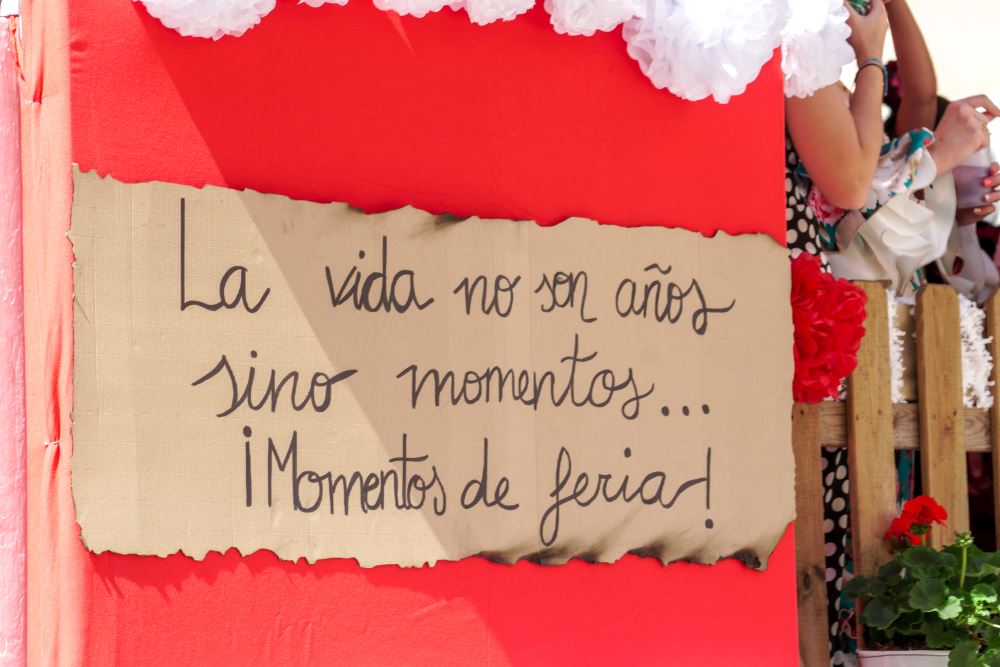 La vida no son años
sino momentos...
¡Momentos de feria!